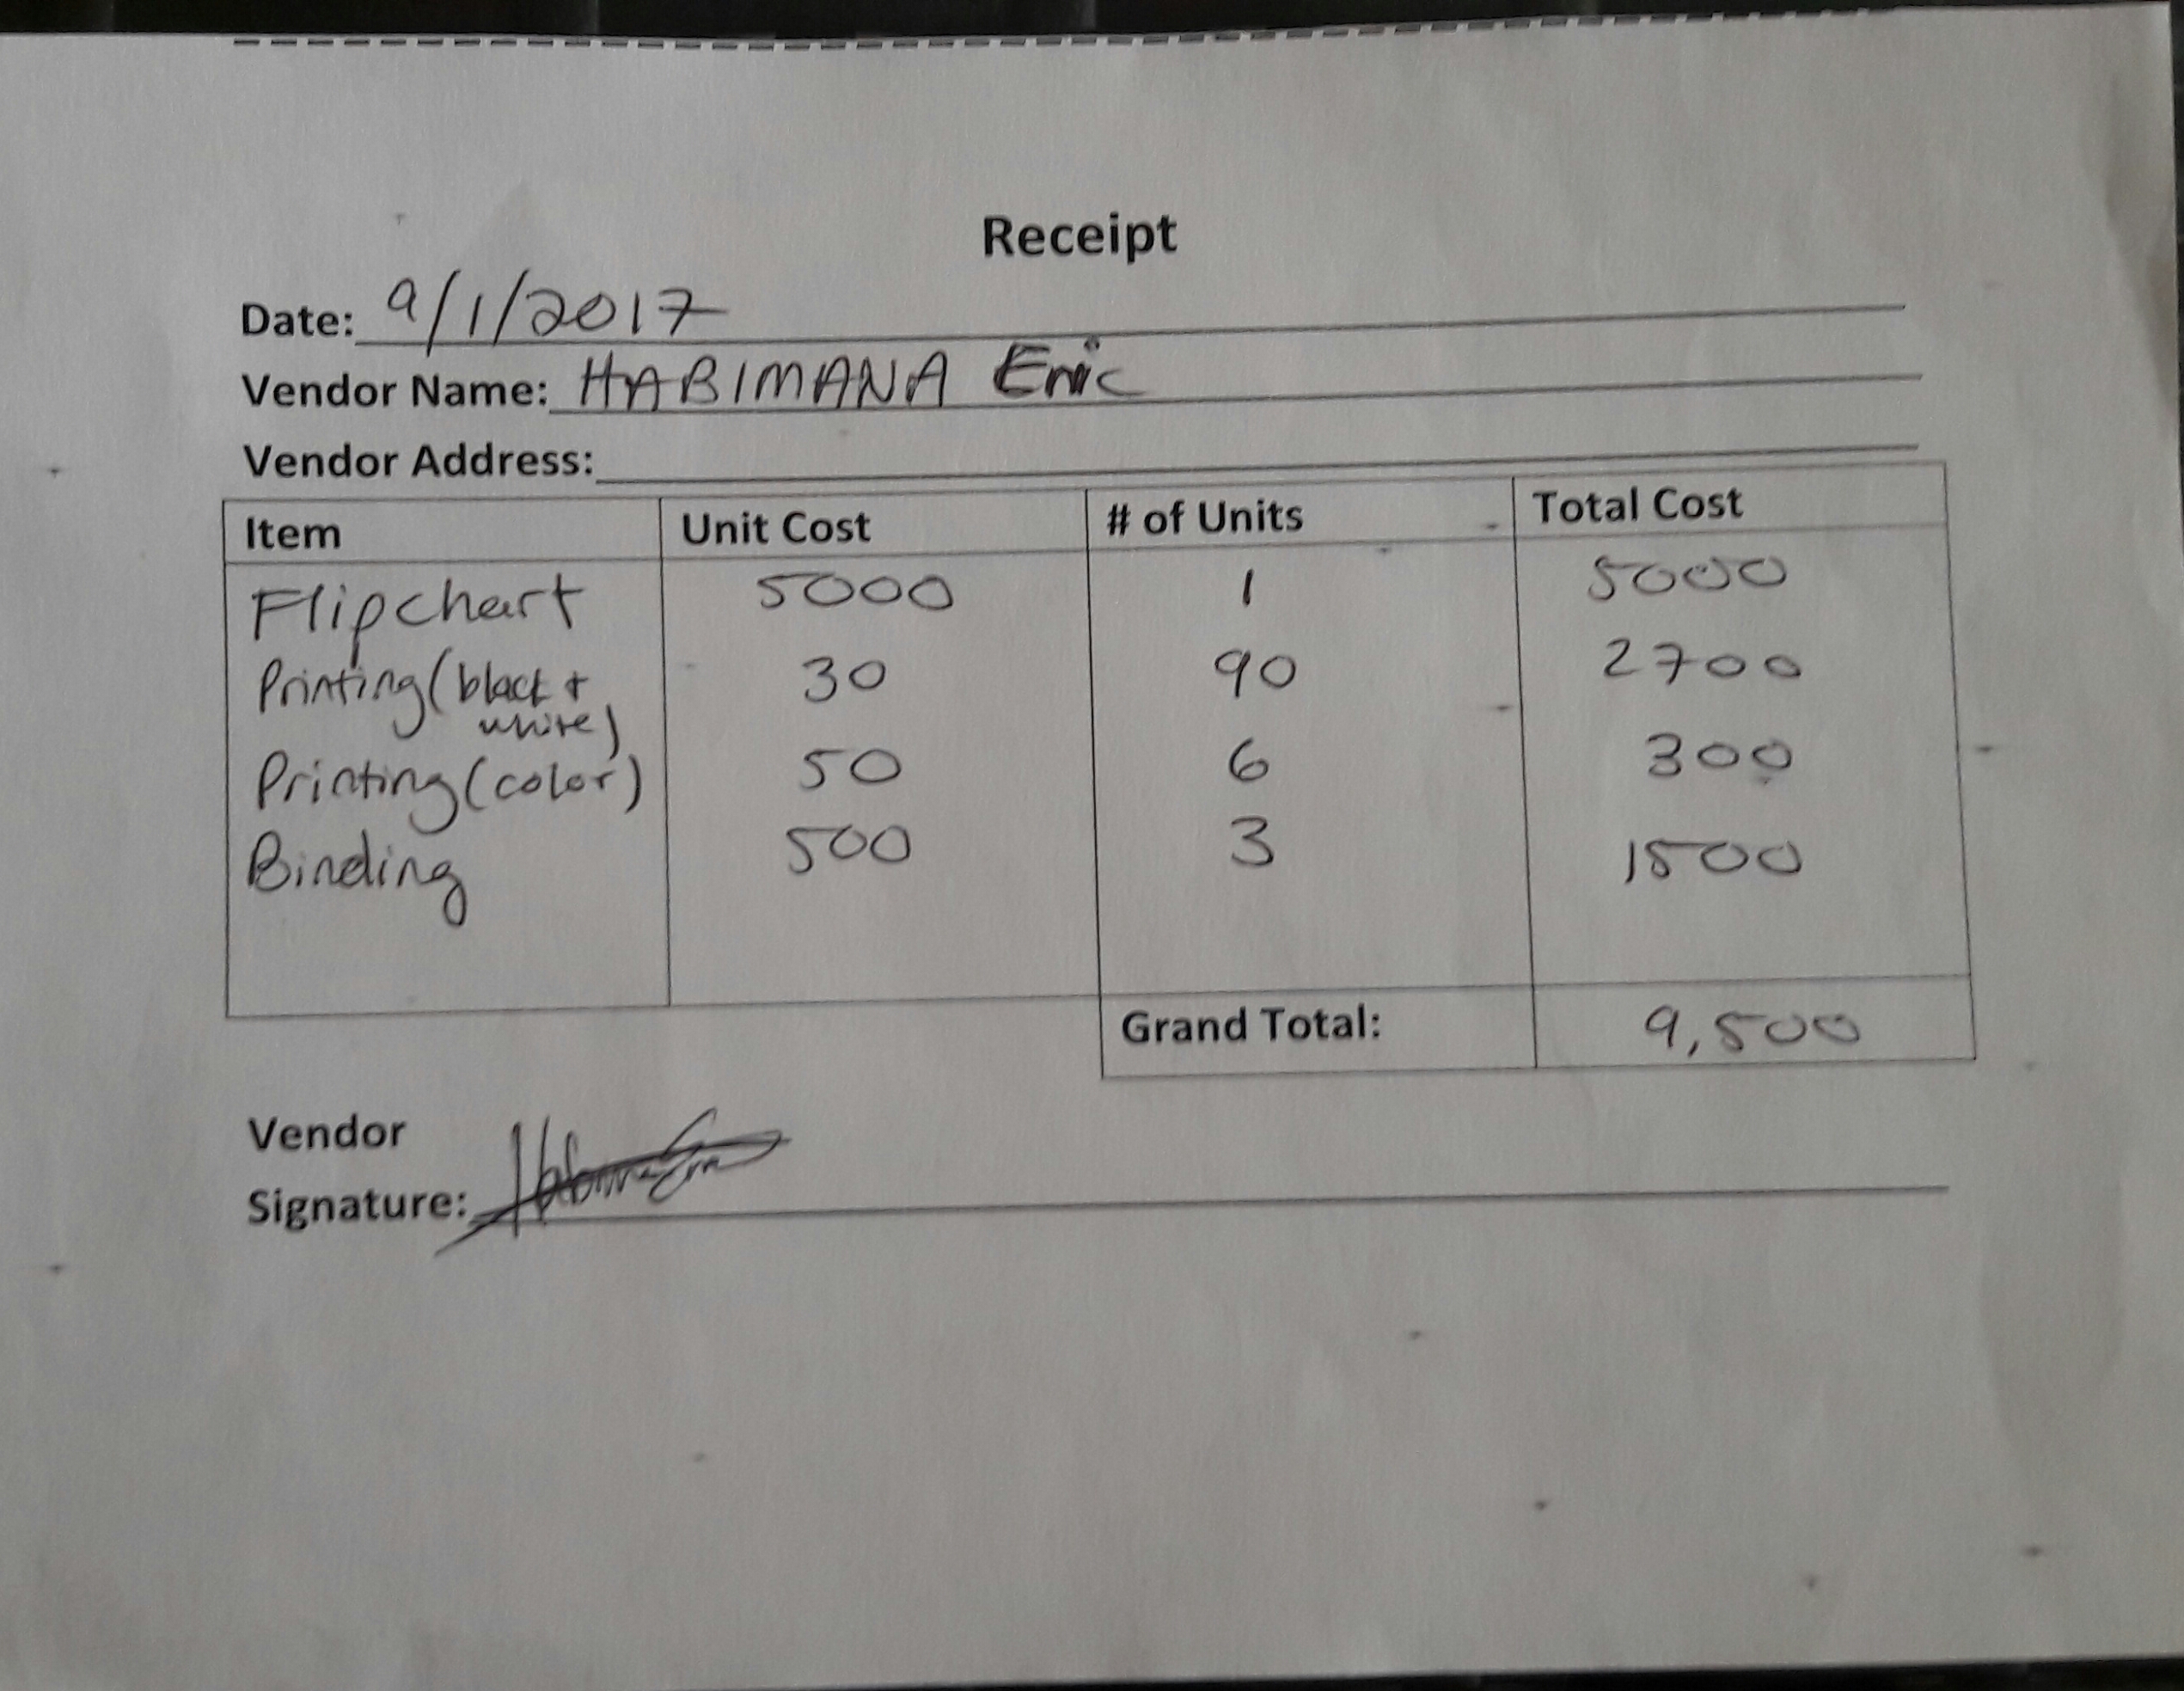 Receipt
Date: 9/1/2017
Vendor Name: HABIMANA Eric
Vendor Address:
Item Unit Cost # of Units Total Cost
Flipchart 5000 1 5000
Printing (black + white) 30 90 2700
Printing (color) 50 6 300
Binding 500 3 1500
Grand Total: 9,500
Vendor
Signature: